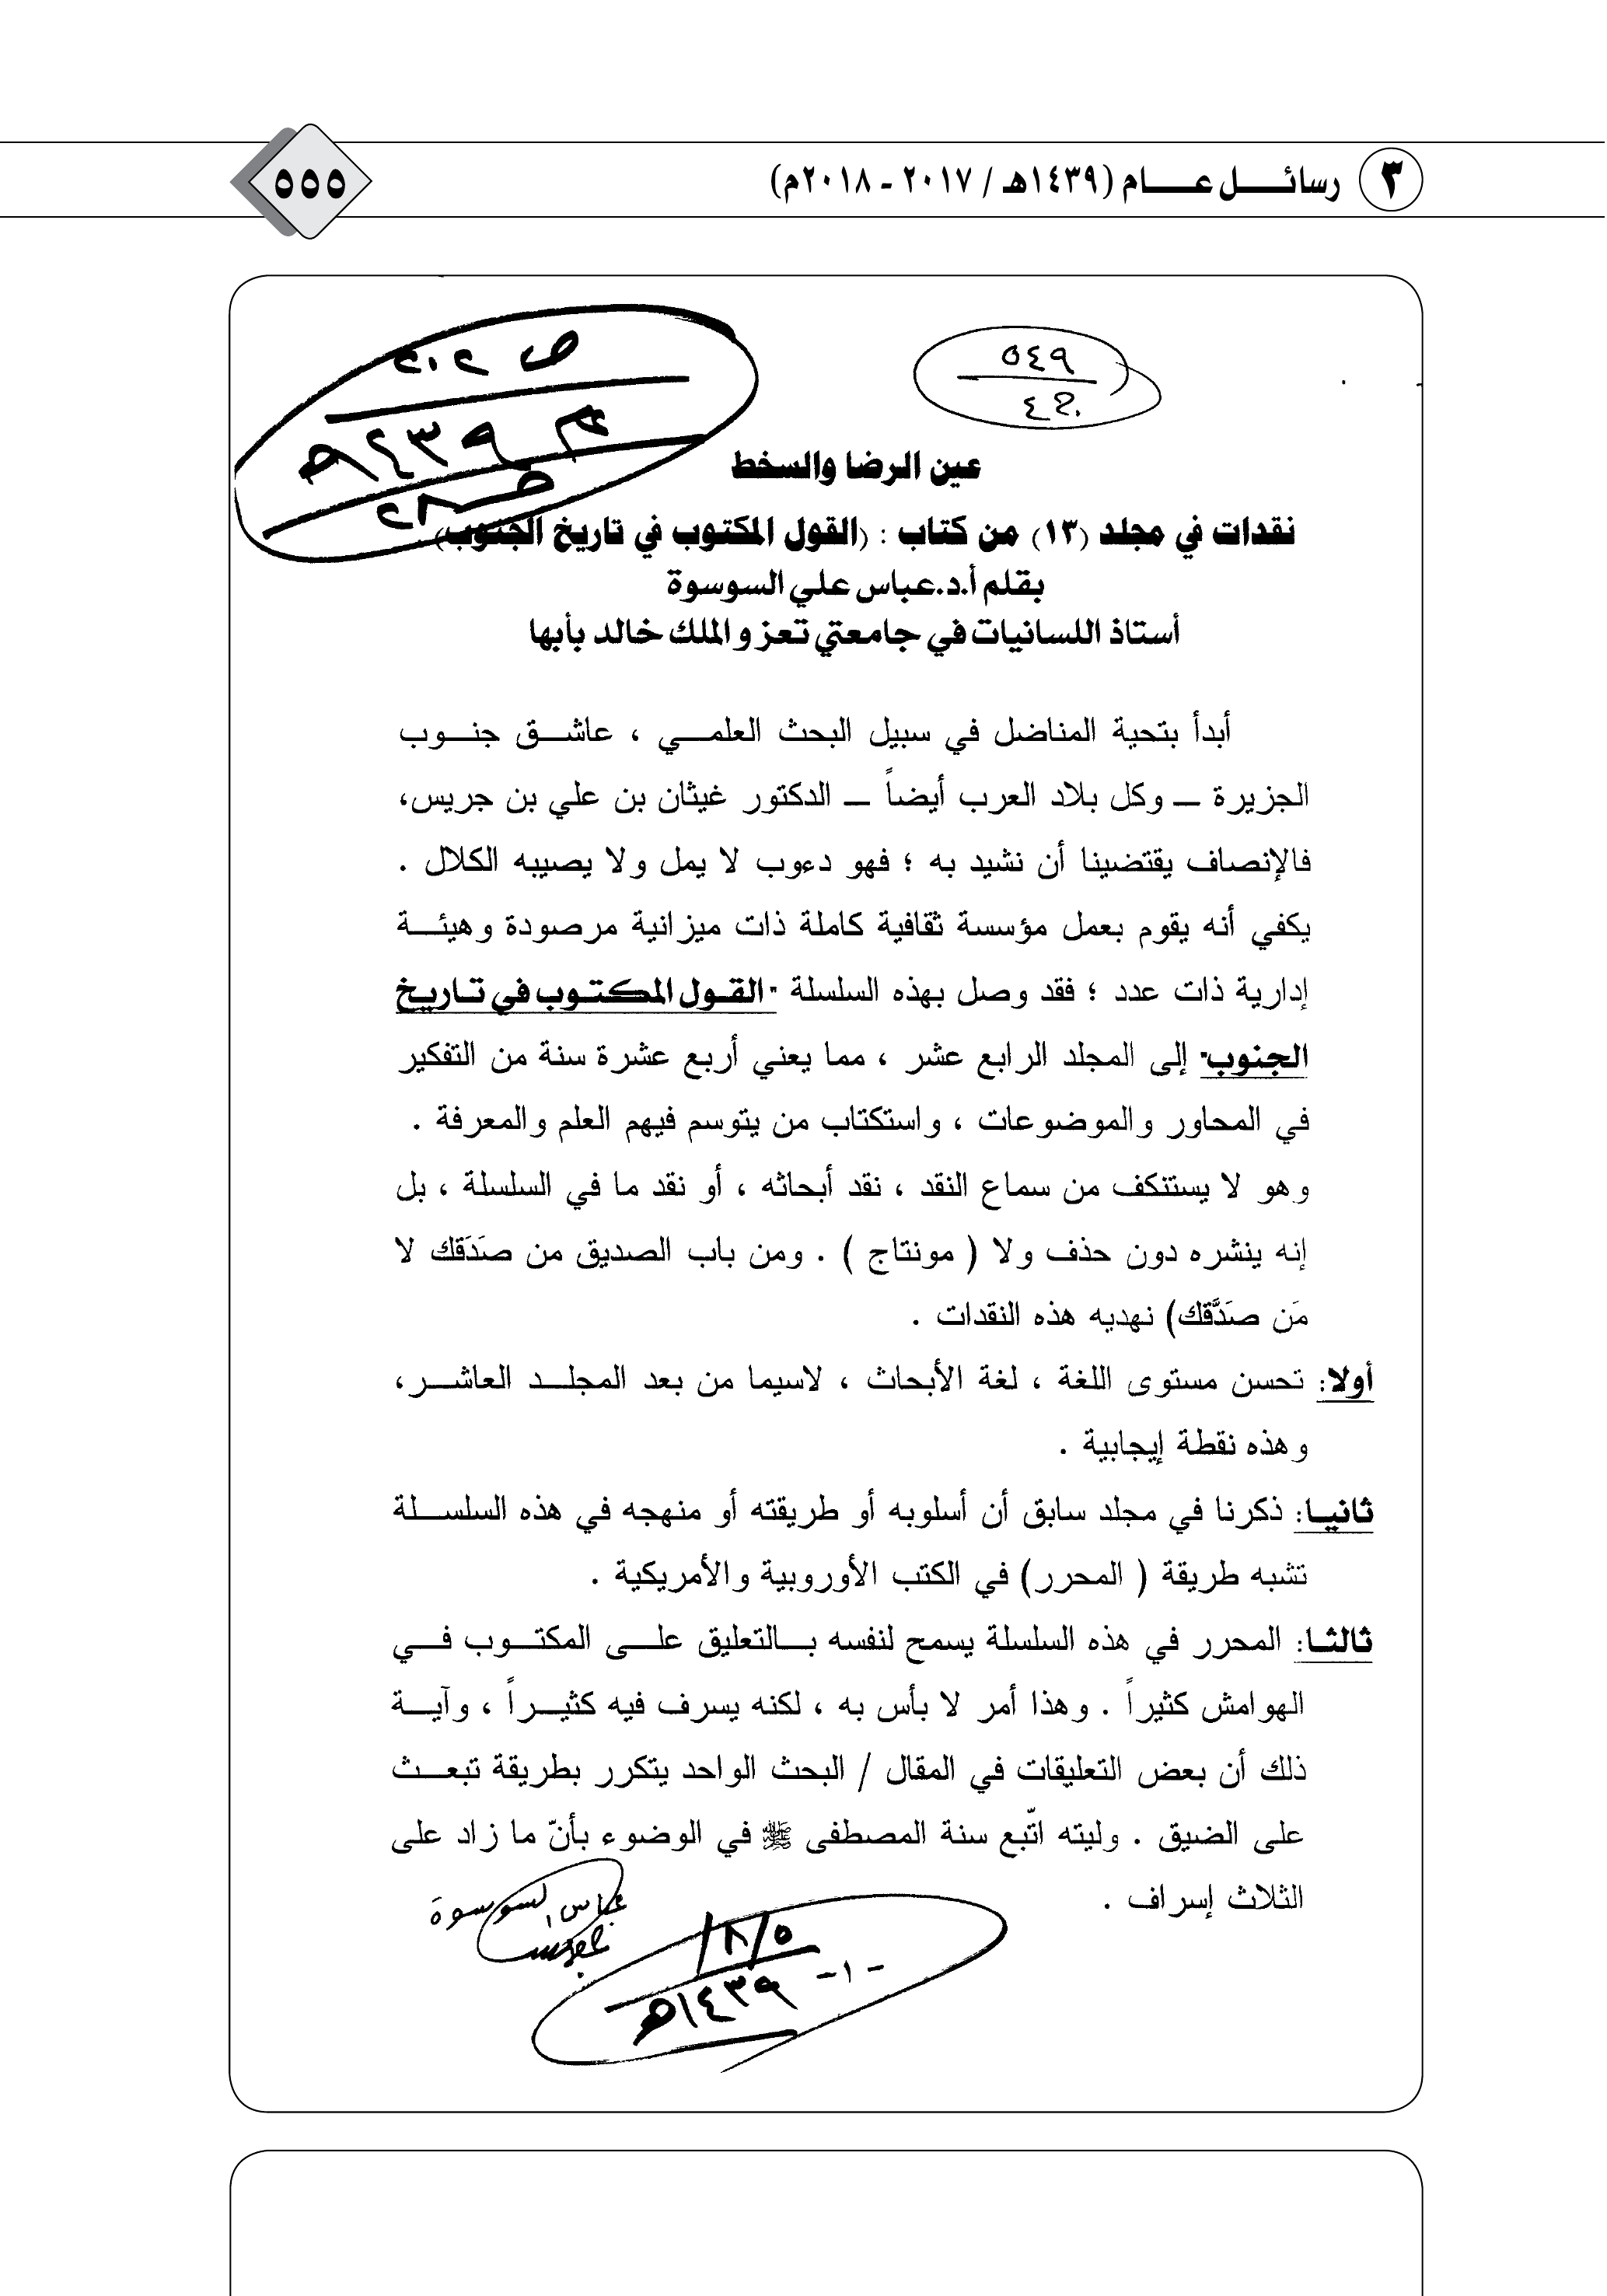 ٣ رسائل عام (١٤٣٩هـ / ٢٠١٧ - ٢٠١٨م)
٥٥٥
٥٤٩
ص ٢٠٢
م ١٤٣٩هـ
عين الرضا والسخط
نقدات في مجلد (١٣) من كتاب : (القول المكتوب في تاريخ الجنوب)
بقلم أ.د.عباس علي السوسوة
أستاذ اللسانيات في جامعتي تعز والملك خالد بأبها
أبدأ بتحية المناضل في سبيل البحث العلمي ، عاشق جنوب
الجزيرة – وكل بلاد العرب أيضاً – الدكتور غيثان بن علي بن جريس،
فالإنصاف يقتضينا أن نشيد به ؛ فهو دءوب لا يمل ولا يصيبه الكلال .
يكفي أنه يقوم بعمل مؤسسة ثقافية كاملة ذات ميزانية مرصودة وهيئة
إدارية ذات عدد ؛ فقد وصل بهذه السلسلة "القول المكتوب في تاريخ
الجنوب" إلى المجلد الرابع عشر ، مما يعني أربع عشرة سنة من التفكير
في المحاور والموضوعات ، واستكتاب من يتوسم فيهم العلم والمعرفة .
وهو لا يستنكف من سماع النقد ، نقد أبحاثه ، أو نقد ما في السلسلة ، بل
إنه ينشره دون حذف ولا ( مونتاج ) . ومن باب الصديق من صَدَقك لا
مَن صَدَّقك) نهديه هذه النقدات .
أولا: تحسن مستوى اللغة ، لغة الأبحاث ، لاسيما من بعد المجلد العاشر،
وهذه نقطة إيجابية .
ثانيا: ذكرنا في مجلد سابق أن أسلوبه أو طريقته أو منهجه في هذه السلسلة
تشبه طريقة ( المحرر) في الكتب الأوروبية والأمريكية .
ثالثا: المحرر في هذه السلسلة يسمح لنفسه بالتعليق على المكتوب في
الهوامش كثيراً . وهذا أمر لا بأس به ، لكنه يسرف فيه كثيراً ، وآية
ذلك أن بعض التعليقات في المقال / البحث الواحد يتكرر بطريقة تبعث
على الضيق . وليته اتّبع سنة المصطفى ﷺ في الوضوء بأنّ ما زاد على
الثلاث إسراف .
عباس السوسوة
٥/٨/
١٤٣٩هـ
-١-